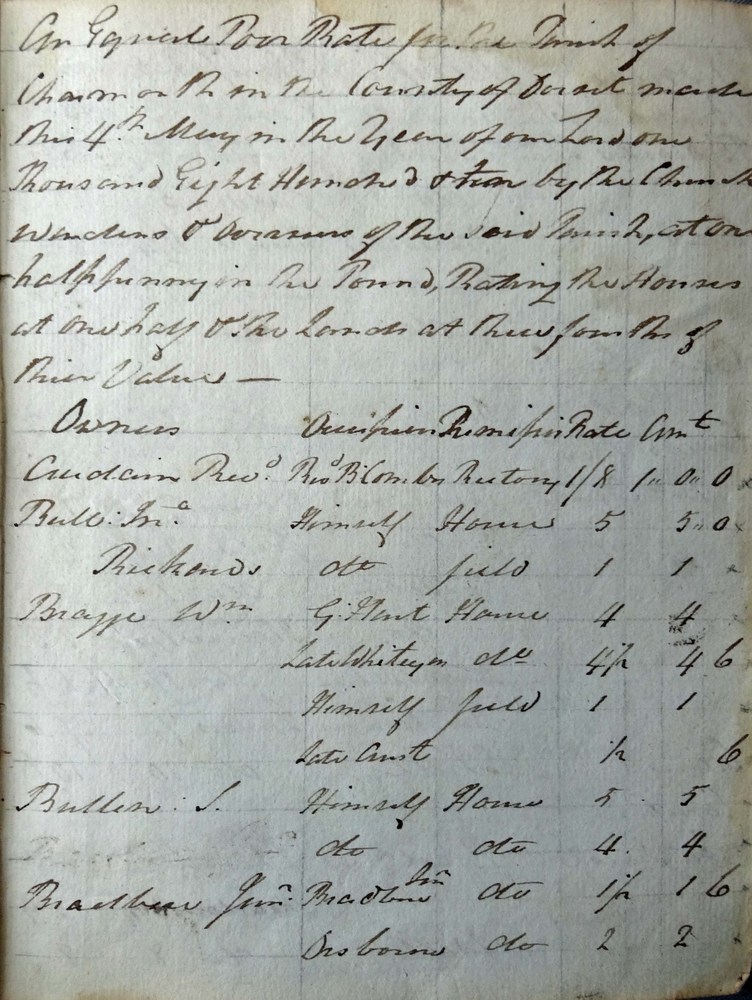 An Equal Poor Rate for the Parish of
Charmouth in the County of Dorset made
this 4th May in the Year of our Lord one
Thousand Eight Hundred & ten by the Church
wardens & Overseers of the said Parish, at one
halfpenny in the Pound, Rating the Houses
at one half & the Lands at three fourths of
their Value —
Owners Occupiers Premises Rate Amt
Revd. Revd B Combe Rectory 1/8 1 „ 0 „ 0
Bull: Jn.o Himself House 5 5 „ 0
Rickards do field 1 1
Bragge Wm G. House 4 4
Late Whiteyon do 4 1/2 4 6
Himself field 1 1
Late 1/2 6
Bullen: S. Himself House 5 5
do do 4 4
Bradbeer Junr. Bradbeer Junr do 1 1/2 1 6
Osborne do 2 2